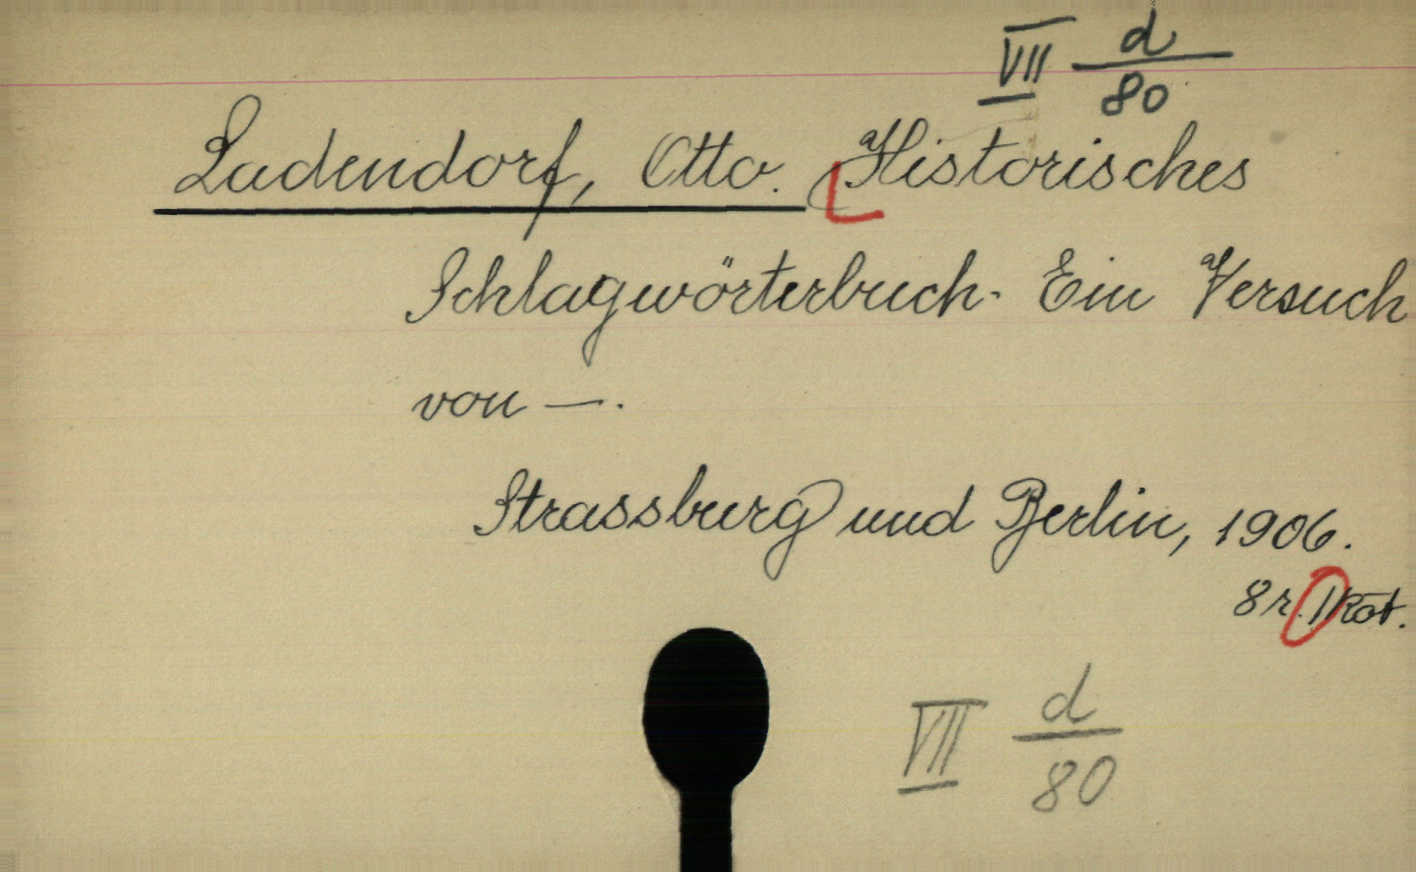 VII d/80
Ladendorf, Otto. Historisches
Schlagwörterbuch. Ein Versuch
von —.
Strassburg und Berlin, 1906.
8r. 1 Köt.
VII d/80